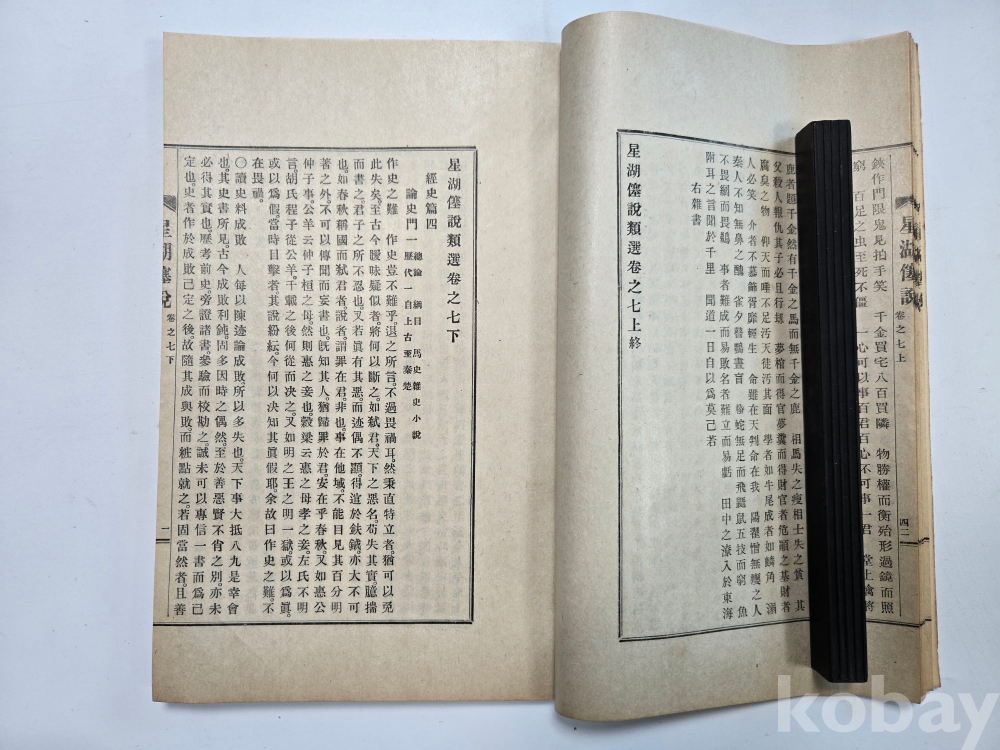 鋏作門限鬼見拍手笑 千金買宅八百買隣 物勝權而衡殆形過鏡而照
窮 百足之虫至死不僵 一心可以事百君百心不可事一君
星湖僿說 卷之七上 四二
鹿者題千金然有千金之馬而無千金之鹿 相馬失之瘦相士失之貧 其
父殺人報仇其子必且行刼 夢棺而得官夢糞而得財官者危顚之基財者
腐臭之物 仰天而唾不足汚天徒汚其面 學者如牛尾成者如麟角 溺
人必笑 介者不慕飾胥靡輕生 命雖在天判命在我 陽瞿憎無癭之人
秦人不知無鼻之醜 雀夕瞽鸎晝盲 螣蛇無足而飛鼯鼠五技而窮 魚
不畏網而畏鵜 事者難成而易敗名者難立而易虧 田中之潦入於東海
附耳之言聞於千里 聞道一日自以爲莫己若
右雜書
星湖僿說類選卷之七上終
星湖僿說類選卷之七下
經史篇四
論史門一 總論 綱目 馬史雜史小說
歷代一 自上古至秦楚
作史之難 作史豈不難乎。退之所言。不過畏禍耳。然秉直特立者。猶可以免
此失矣。至古今曖昧疑似者。將何以斷之。如弑君。天下之惡名。苟失其實。臆揣
而書之。君子之所不忍也。又若眞有其惡。而迹偶不顯。得逭於鈇鉞。亦大不可
也。如春秋稱國而弑君者。說者。謂罪在君。非也。事在他域。不能目見其百分明
著之外。不可以傳聞而妄書也。旣知其人。猶歸罪於君。安在乎春秋。又如惠公
仲子事。公羊云仲子桓之母。然則惠之妾也。穀梁云惠之母孝之妾。左氏不明
言。胡氏程子從公羊。千載之後何從而決之。又如明之王之明一獄。或以爲眞。
或以爲假。當時目擊者。其說紛紜。今何以決知其眞假耶。余故曰作史之難。不
在畏禍。
〇讀史料成敗 人每以陳迹論成敗。所以多失也。天下事大抵八九是幸會
也。其史書所見。古今成敗利鈍。固多因時之偶然。至於善惡賢不肖之別。亦未
必得其實也。歷考前史。旁證諸書。參驗而校勘之。誠未可以專信一書而爲己
定也。史者作於成敗已定之後。故隨其成與敗。而粧點就之。若固當然者。且善
星湖僿說 卷之七下 一
kobay